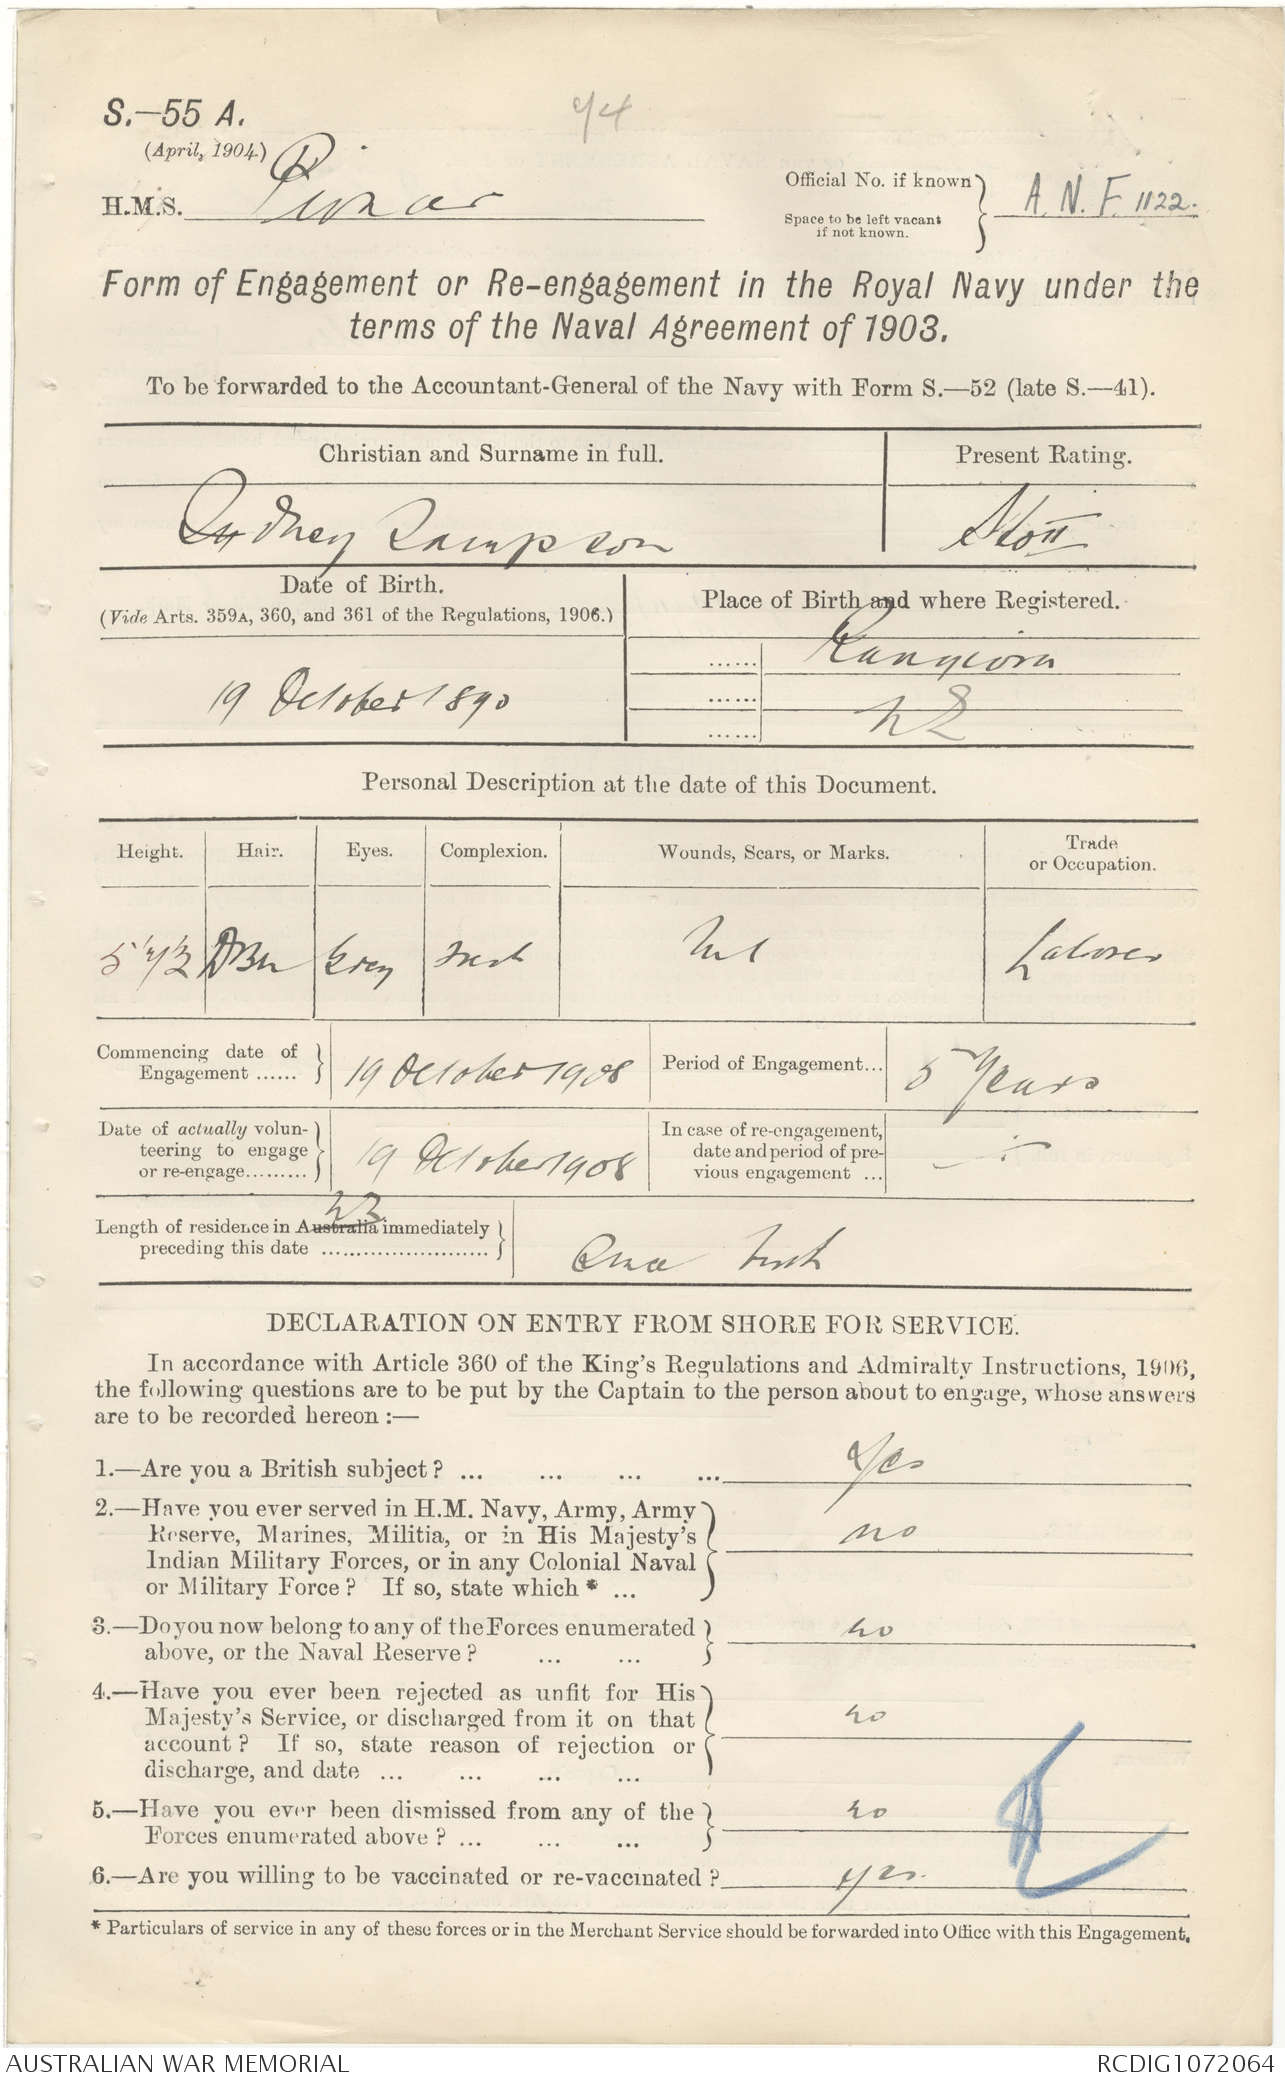 S.—55 A.
(April, 1904)
94
H.M.S. Pioneer
Official No. if known
Space to be left vacant
if not known.
A. N. F. 1122.
Form of Engagement or Re-engagement in the Royal Navy under the
terms of the Naval Agreement of 1903.
To be forwarded to the Accountant-General of the Navy with Form S.—52 (late S.—41).
Christian and Surname in full.
Present Rating.
Sydney Sampson
Sto II
Date of Birth.
(Vide Arts. 359A, 360, and 361 of the Regulations, 1906.)
Place of Birth and where Registered.
19 October 1890
...... Rangiora
...... NZ
......
Personal Description at the date of this Document.
Height. Hair. Eyes. Complexion. Wounds, Scars, or Marks. Trade
or Occupation.
DBn Grey Fresh Nil Laborer
Commencing date of
Engagement ......
19 October 1908
Period of Engagement...
5 Years
Date of actually volun-
teering to engage
or re-engage.........
19 October 1908
In case of re-engagement,
date and period of pre-
vious engagement ...
NZ
Length of residence in Australia immediately
preceding this date ........................
DECLARATION ON ENTRY FROM SHORE FOR SERVICE.
In accordance with Article 360 of the King's Regulations and Admiralty Instructions, 1906,
the following questions are to be put by the Captain to the person about to engage, whose answers
are to be recorded hereon :—
1.—Are you a British subject? ... ... ... ... Yes
2.—Have you ever served in H.M. Navy, Army, Army
Reserve, Marines, Militia, or in His Majesty's
Indian Military Forces, or in any Colonial Naval
or Military Force? If so, state which * ...
no
3.—Do you now belong to any of the Forces enumerated
above, or the Naval Reserve? ... ...
no
4.—Have you ever been rejected as unfit for His
Majesty's Service, or discharged from it on that
account? If so, state reason of rejection or
discharge, and date ... ... ... ...
no
5.—Have you ever been dismissed from any of the
Forces enumerated above? ... ... ...
no
6.—Are you willing to be vaccinated or re-vaccinated? yes.
* Particulars of service in any of these forces or in the Merchant Service should be forwarded into Office with this Engagement.
AUSTRALIAN WAR MEMORIAL
RCDIG1072064